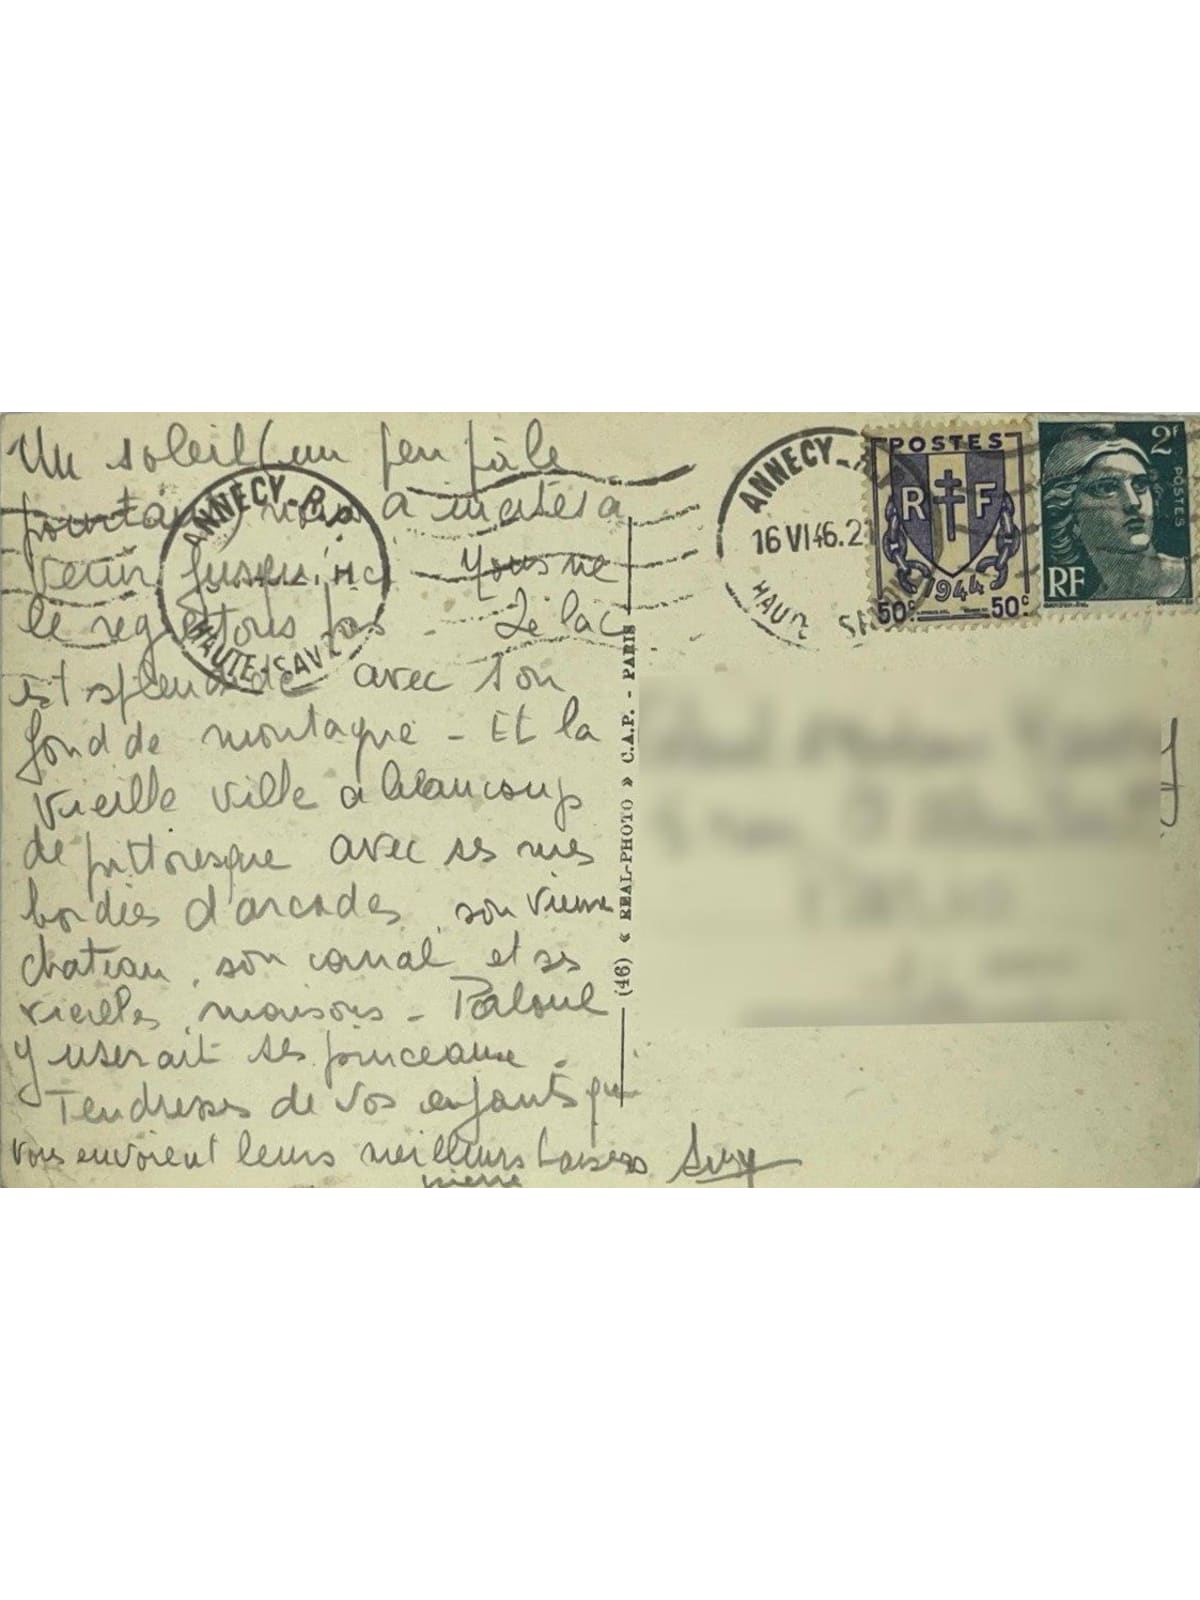 Un soleil un peu pâle
pourtant nous a incités à
venir jusqu'ici. Nous ne
le regrettons pas - Le lac
est splendide avec son
fond de montagne - Et la
vieille ville a beaucoup
de pittoresque avec ses rues
bordées d'arcades, son vieux
chateau, son canal et ses
vieilles maisons -
y userait ses pinceaux.
Tendresses de vos enfants qui
vous envoient leurs meilleurs baisers Suzy
Pierre
ANNECY-
HAUTE-SAV
(46) « REAL-PHOTO » C.A.P. - PARIS
ANNECY-
16 VI 46.
POSTES
RF
1944
50c 50c
2F
POSTES
RF